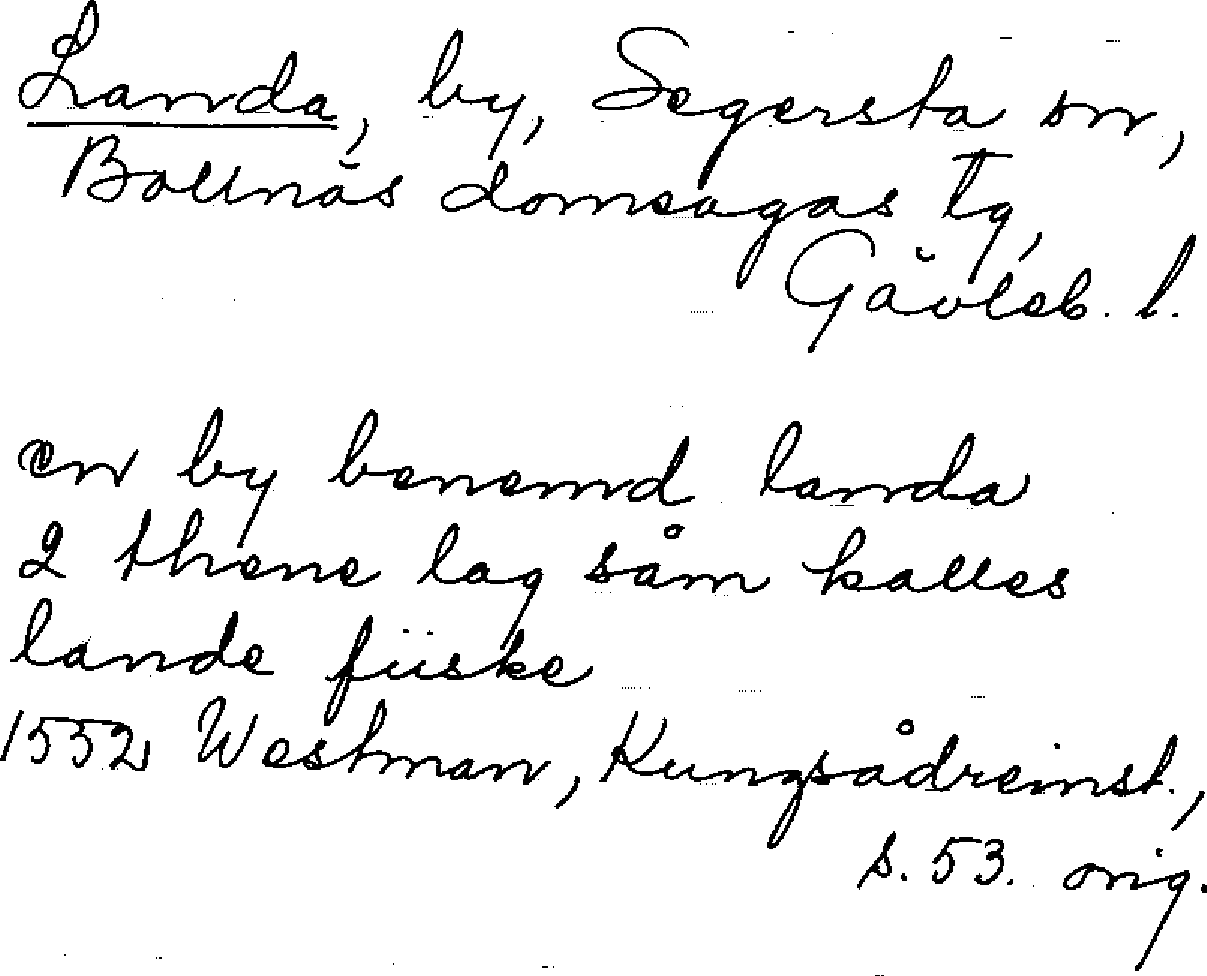 Landa, by, Segersta sn,
Bollnäs domsagas tg,
Gävleb. l.
en by benemd landa
2 thene lag såm kalles
lande füske
1552 Westman, Kungsådreinst.,
s. 53. orig.